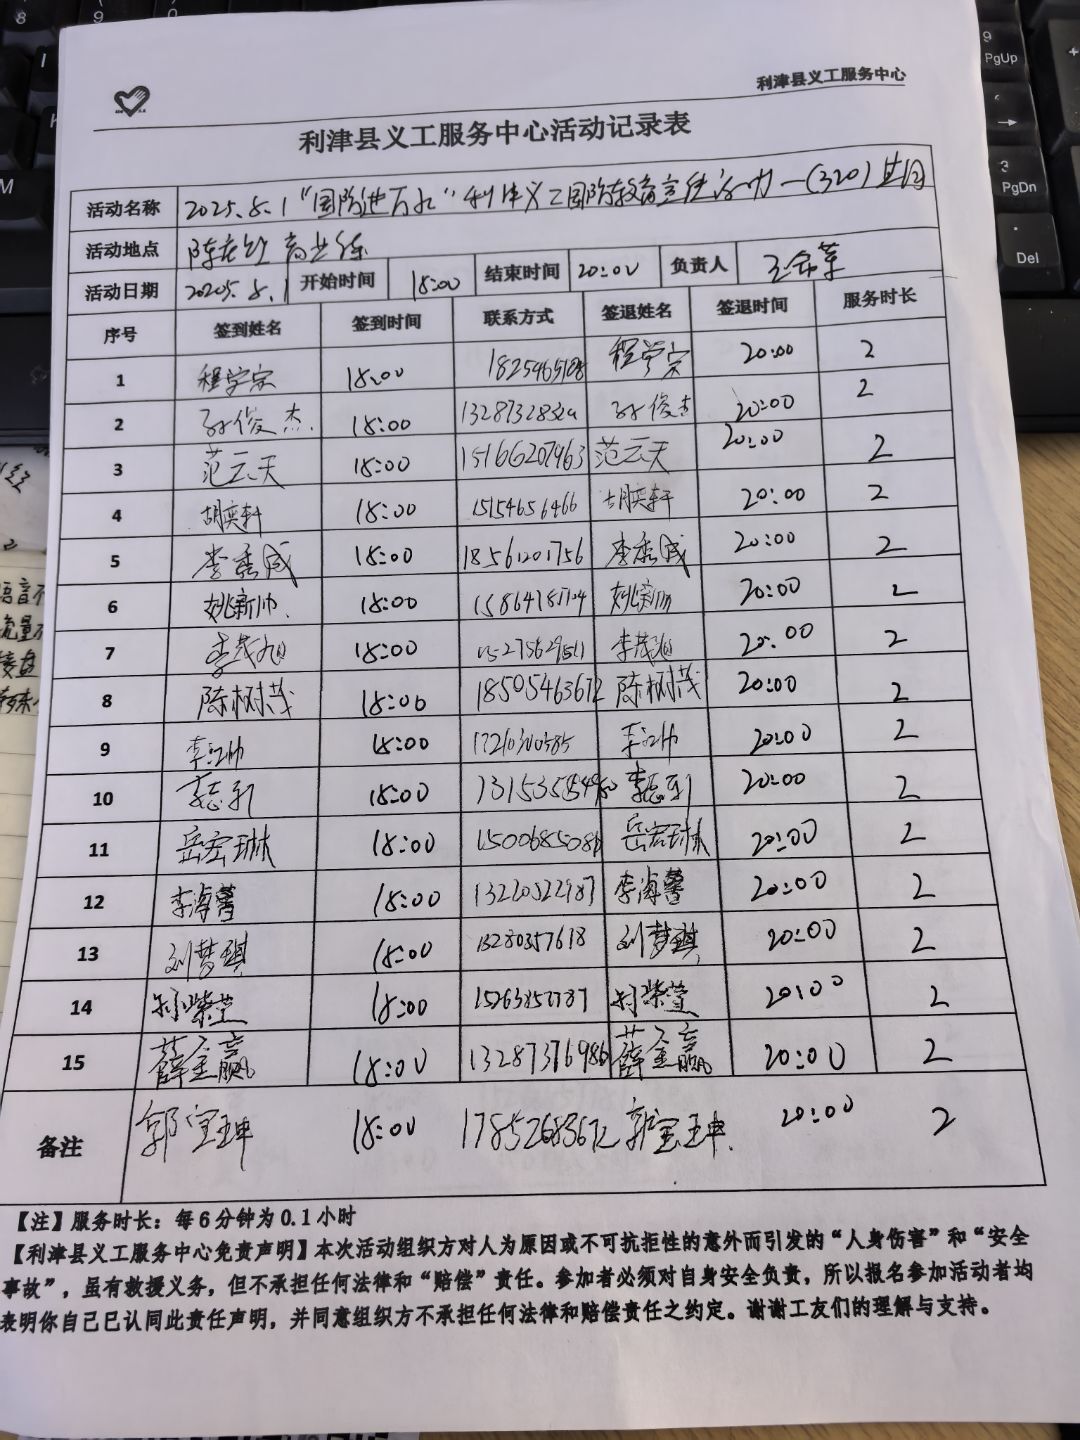 利津县义工服务中心
利津县义工服务中心活动记录表
活动名称 2025.8.1 "国防进万家" 利津义工国防教育宣传活动—(320)
活动地点 陈庄红 商业街
活动日期 2025.8.1 开始时间 18:00 结束时间 20:00 负责人
序号 签到姓名 签到时间 联系方式 签退姓名 签退时间 服务时长
1 程学宗 18:00 程学宗 20:00 2
2 孙俊杰 18:00 孙俊杰 20:00 2
3 范云天 18:00 15166207963 范云天 20:00 2
4 胡奕轩 18:00 15154656466 胡奕轩 20:00 2
5 李秉成 18:00 18561201756 李秉成 20:00 2
6 姚新帅 18:00 姚新帅 20:00 2
7 李茂旭 18:00 李茂旭 20:00 2
8 陈树茂 18:00 18505463672 陈树茂 20:00 2
9 李江帅 18:00 李江帅 20:00 2
10 李志新 18:00 李志新 20:00 2
11 岳宏琳 18:00 岳宏琳 20:00 2
12 李海馨 18:00 13220522987 李海馨 20:00 2
13 刘梦琪 18:00 13280357618 刘梦琪 20:00 2
14 孙紫萱 18:00 孙紫萱 20:00 2
15 薛金赢 18:00 13287376986 薛金赢 20:00 2
备注 郭宝珅 18:00 17852683672 郭宝珅 20:00 2
【注】服务时长：每6分钟为0.1小时
【利津县义工服务中心免责声明】本次活动组织方对人为原因或不可抗拒性的意外而引发的“人身伤害”和“安全
事故”，虽有救援义务，但不承担任何法律和“赔偿”责任。参加者必须对自身安全负责，所以报名参加活动者均
表明你自己已认同此责任声明，并同意组织方不承担任何法律和赔偿责任之约定。谢谢工友们的理解与支持。